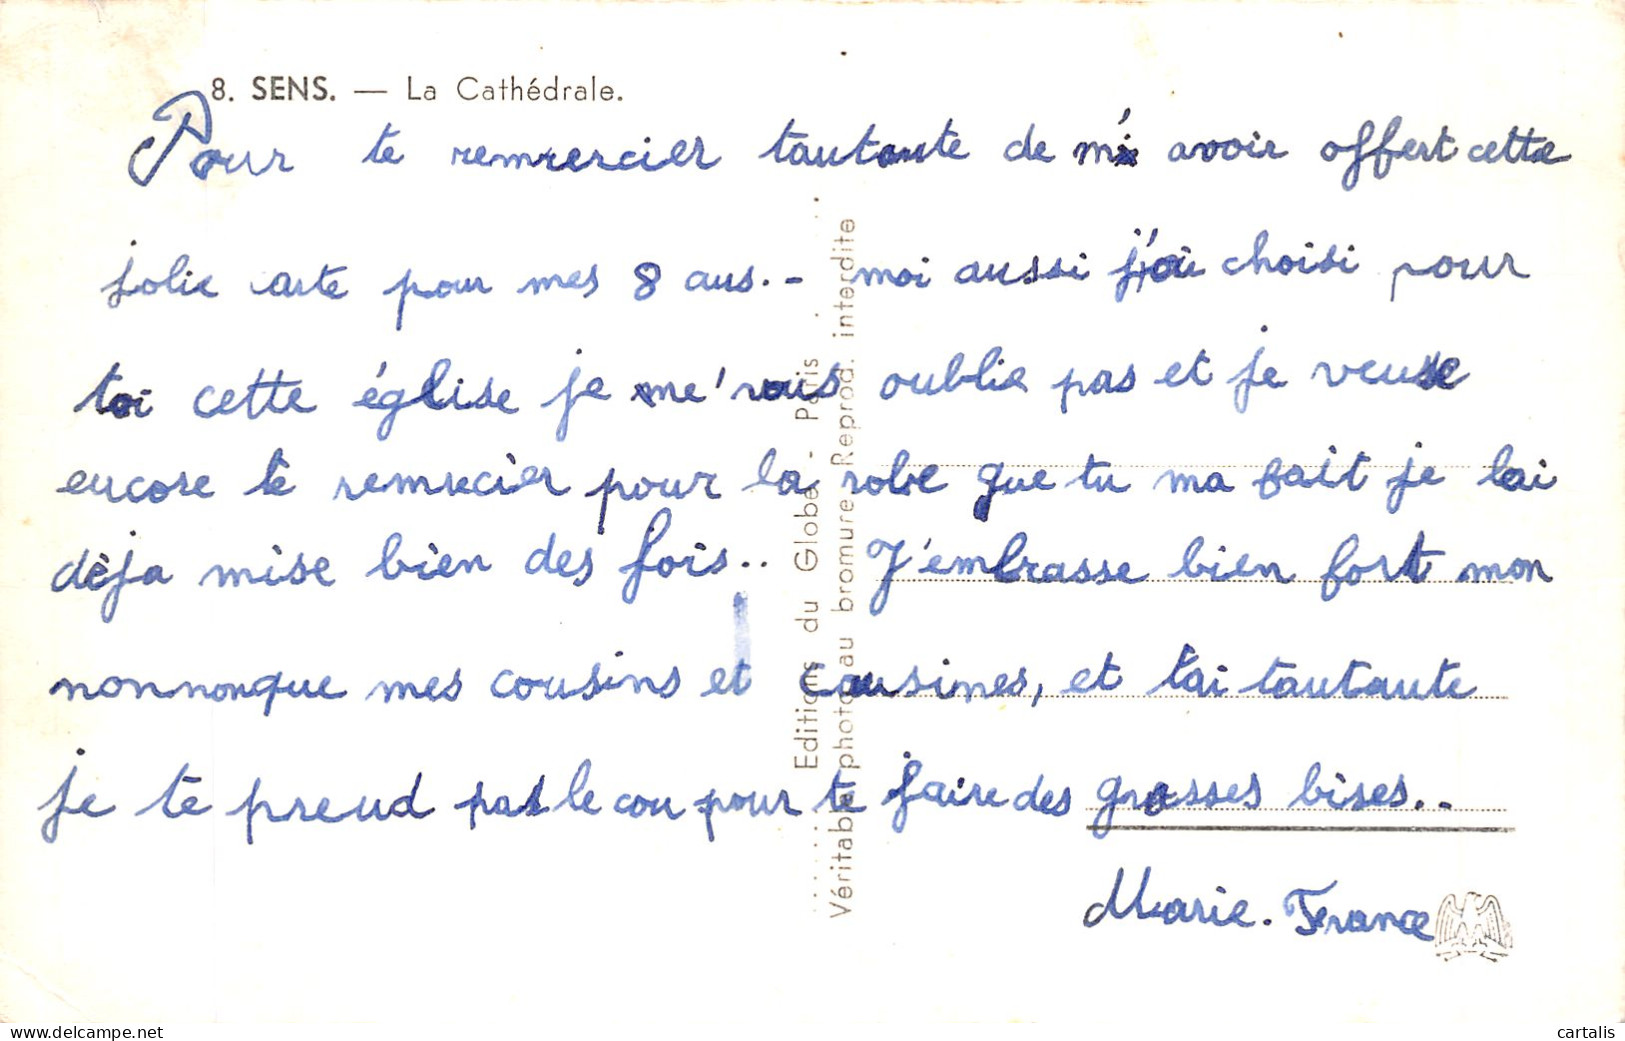 8. SENS. — La Cathédrale.
Pour te remrercier tautaute de m'i avoir offert cette
jolie carte pour mes 8 aus. - moi aussi j'ai choisi pour
toi cette église je me'rais oublie pas et je veuse
encore te remrecier pour la robe que tu ma fait je lai
dèja mise bien des fois.. J'embrasse bien fort mon
nonnonque mes cousins et cousines, et tai tautaute
je te preud pas le cou pour te faire des grosses bises..
Marie-France
Editions du Globe - Paris
Véritable photo au bromure, Reprod. interdite
www.delcampe.net
cartalis